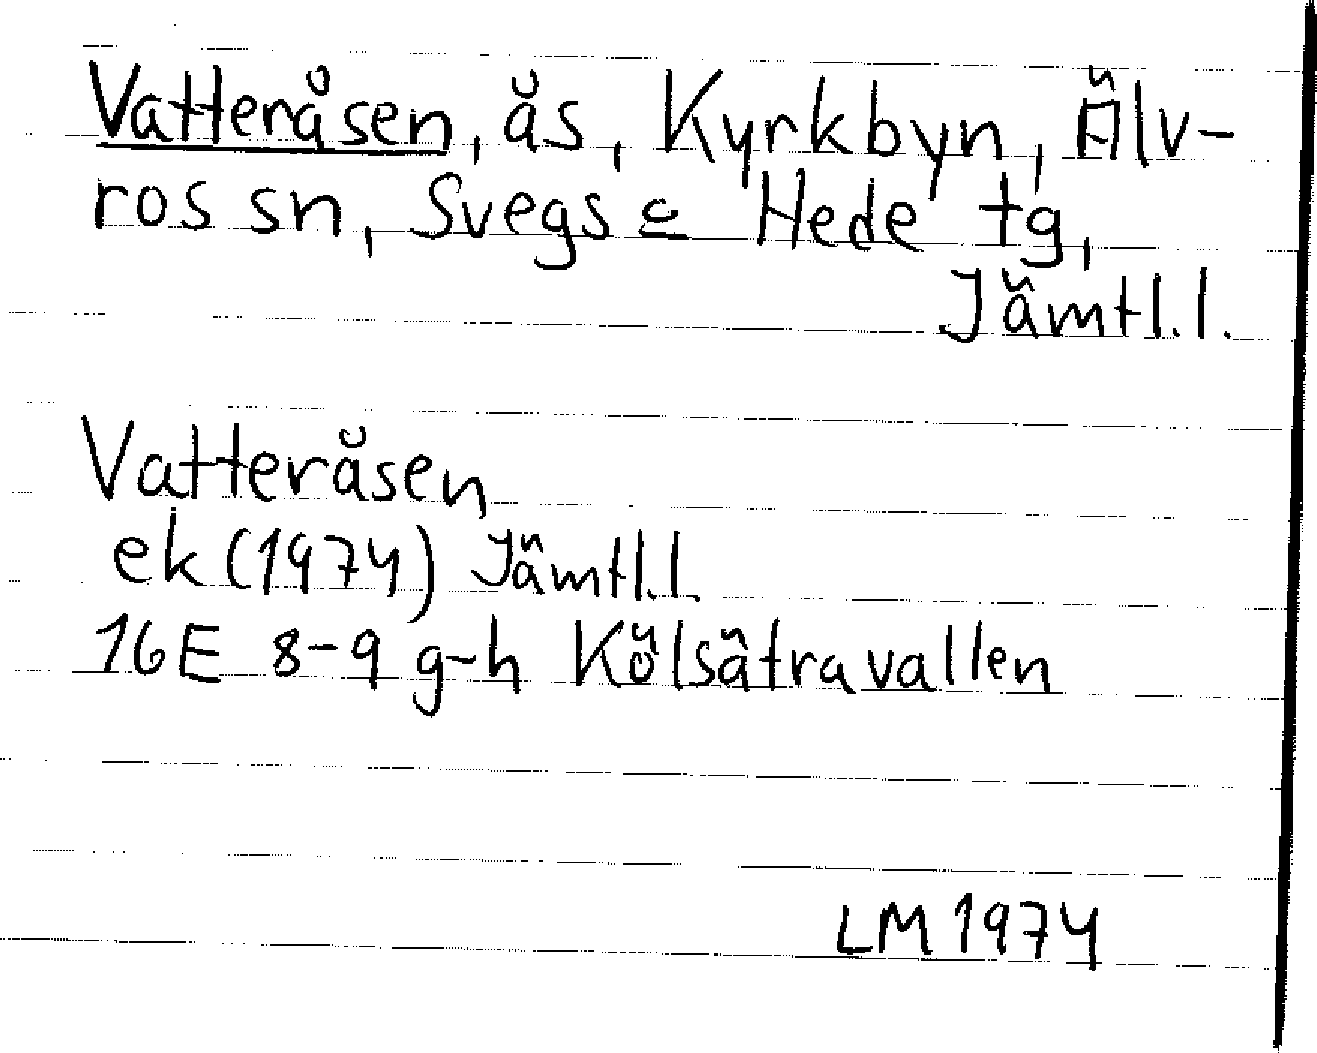 Vatteråsen, ås, Kyrkbyn, Älv-
ros sn, Svegs o Hede tg,
Jämtl.l.
Vatteråsen
ek (1974) Jämtl.l.
16E 8-9 g-h Kölsätravallen
LM 1974